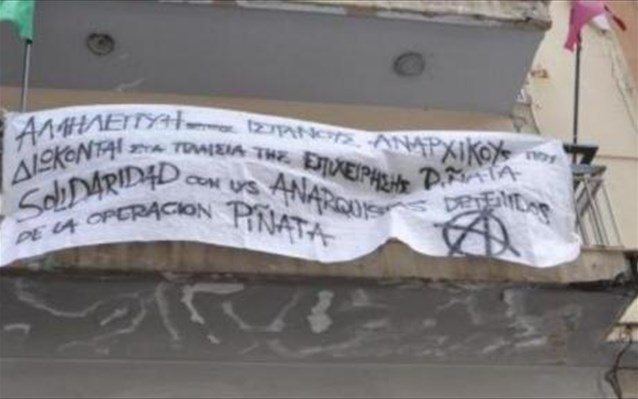 ΑΛΛΗΛΕΓΓΥΗ στους ΙΣΠΑΝΟΥΣ ΑΝΑΡΧΙΚΟΥΣ που
ΔΙΩΚΟΝΤΑΙ στα ΠΛΑΙΣΙΑ ΤΗΣ ΕΠΙΧΕΙΡΗΣΗΣ PIÑATA
SOLIDARIDAD CON LXS ANARQUISTAS DETENIDXS
DE LA OPERACION PIÑATA